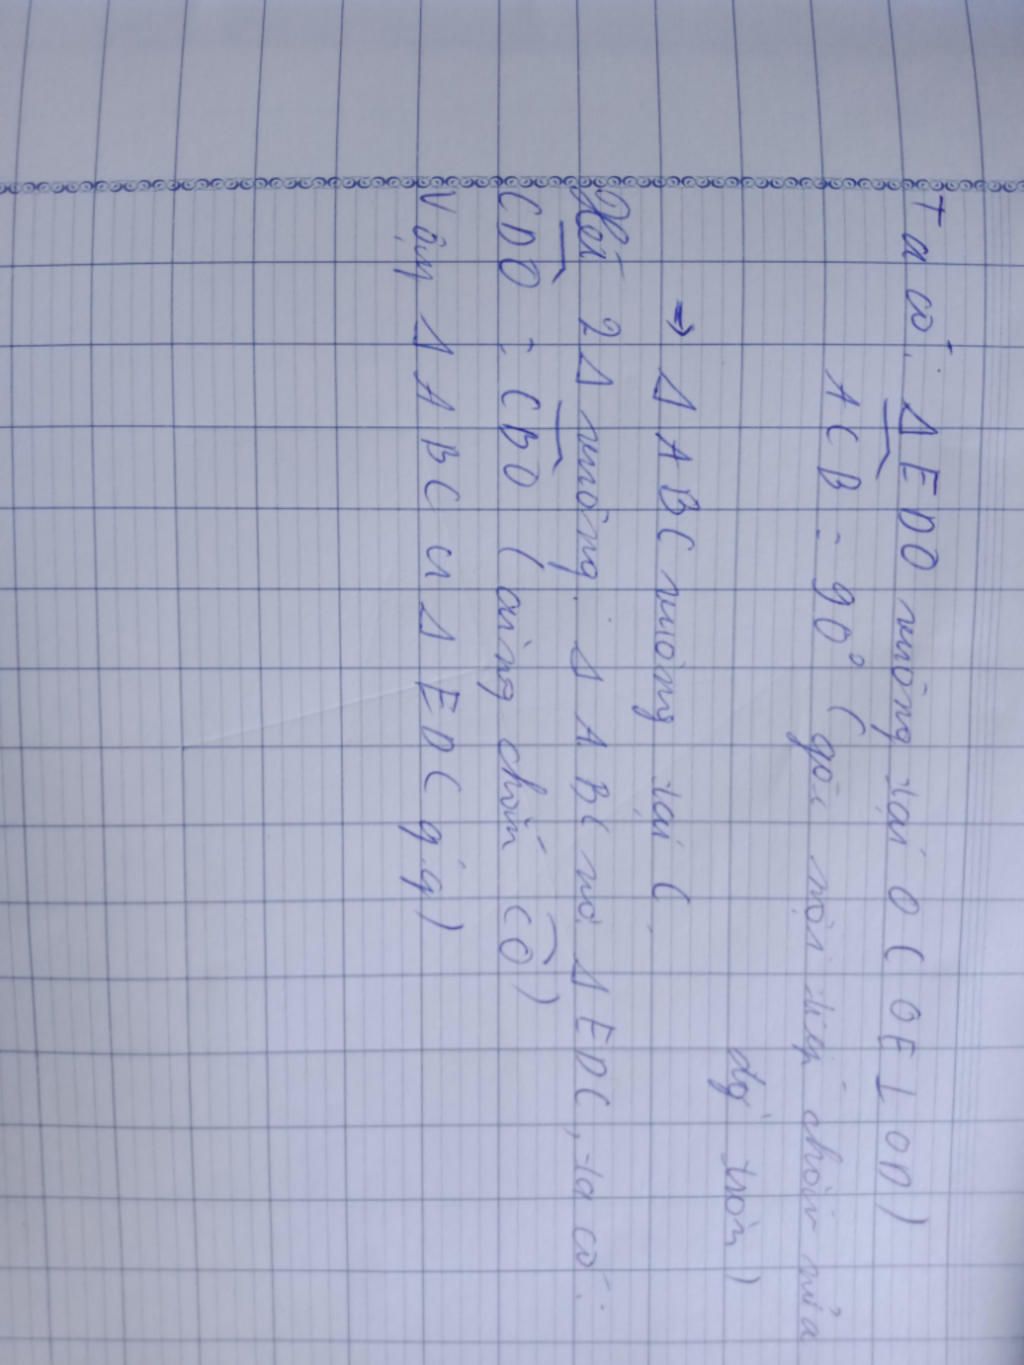 Ta có: Δ EDO vuông tại O ( OE ⊥ OD )
ACB = 90° ( góc nội tiếp chắn nửa
đg' tròn )
→ Δ ABC vuông tại C,
Xét 2 Δ vuông: Δ ABC và Δ EDC, ta có:
CDO = CBO ( cùng chắn CO )
Vậy Δ ABC ᔕ Δ EDC g.g )